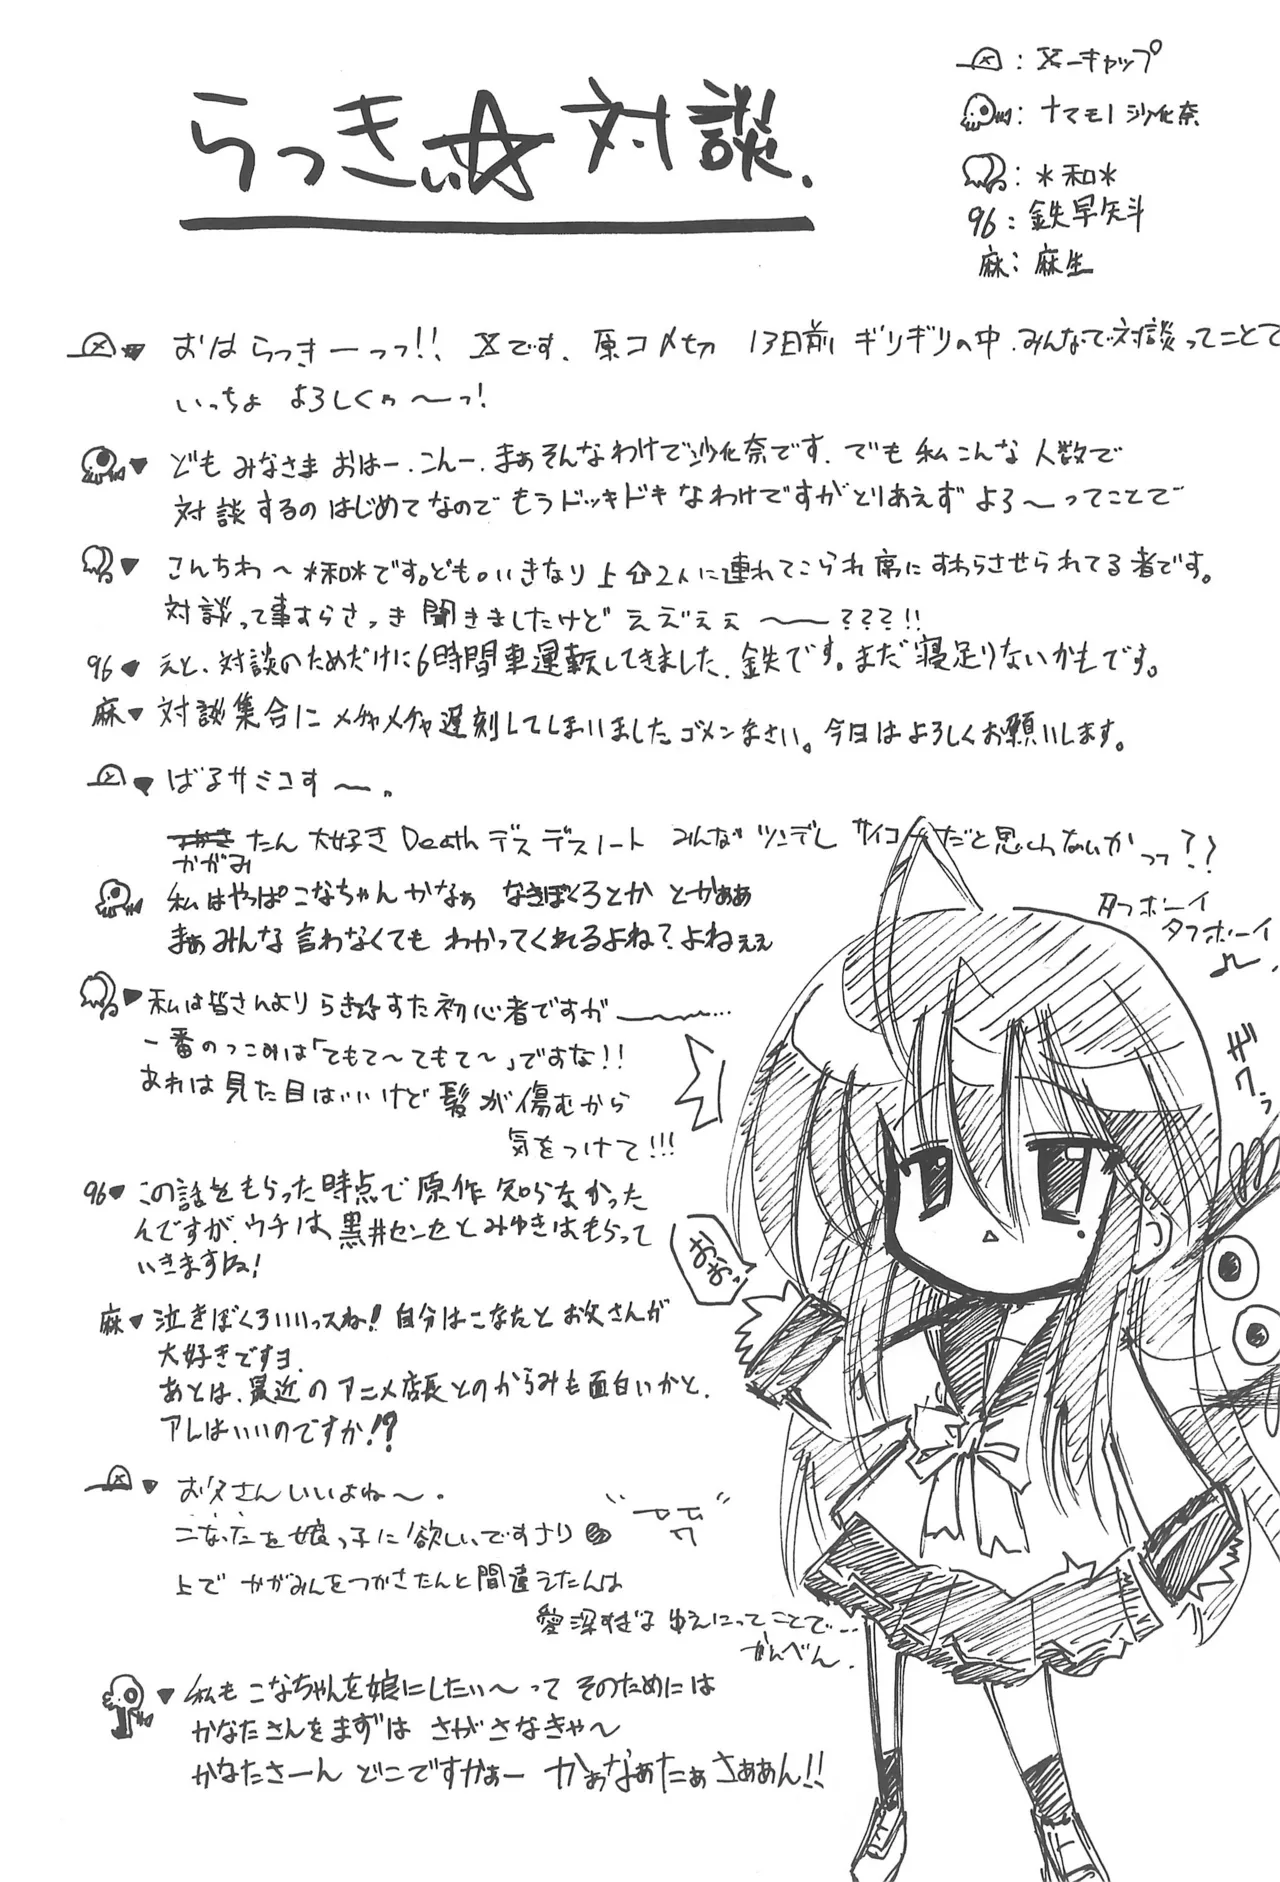 らっきぃ☆対談.
：X-キャップ
：ナマモノ沙化奈
：＊和＊
96：鉄早矢斗
麻：麻生
おはらっきーっっ!!、Xです、原コメ切 13日前 ギリギリの中、みんなで対談ってことで
いっちょ よろしくぅ〜っ!
ども みなさま おはー、こんー、まぁそんなわけで沙化奈です、でも私こんな人数で
対談するのはじめてなので もうドッキドキなわけですがとりあえず よろ〜ってことで
こんちわ〜＊和＊です。ども。いきなり上の2人に連れてこられ席にすわらせられてる者です。
対談って事すらさっき聞きましたけど ええ゛ぇぇ〜〜???!!
96♥えと、対談のためだけに6時間車運転してきました、鉄です。まだ寝足りないかもです。
麻♥対談集合にメチャメチャ遅刻してしまいました、ゴメンなさい。今日はよろしくお願いします。
ばるサミコす〜。
かがみたん大好き Deathデスデスノート みんな ツンデレ サイコーだと思わないかっっ??
私はやっぱこなちゃんかなぁ なきぼくろとか とかぁぁ
まぁみんな言わなくてもわかってくれるよね?よねぇぇ
タフボーイ
タフボーイ♪.
私は皆さんより らき☆すた初心者ですが〜〜…
一番のつこみは「てもて〜てもて〜」ですな!!
あれは見た目はいいけど髪が傷むから
気をつけて!!!
モワっ
96♥この話をもらった時点で原作知らなかった
んですが、ウチは、黒井センセとみゆきはもらって
いきますね!
おおっ
麻♥泣きぼくろいいっスね!自分はこなたとお父さんが
大好きですヨ.
あとは、最近のアニメ店長とのからみも面白いかと、
アレはいいのですか!?
お父さんいいよね〜.
こなったを娘っ子に欲しいですナリ
上でかがみんをつかさたんと間違えたんは
愛深すぎるゆえにってことで…
かんべん.
私もこなちゃんを娘にしたい〜って そのためには
かなたさんをまずは さがさなきゃ〜
かなたさーん どこですかぁー かぁなぁたぁさぁぁん!!